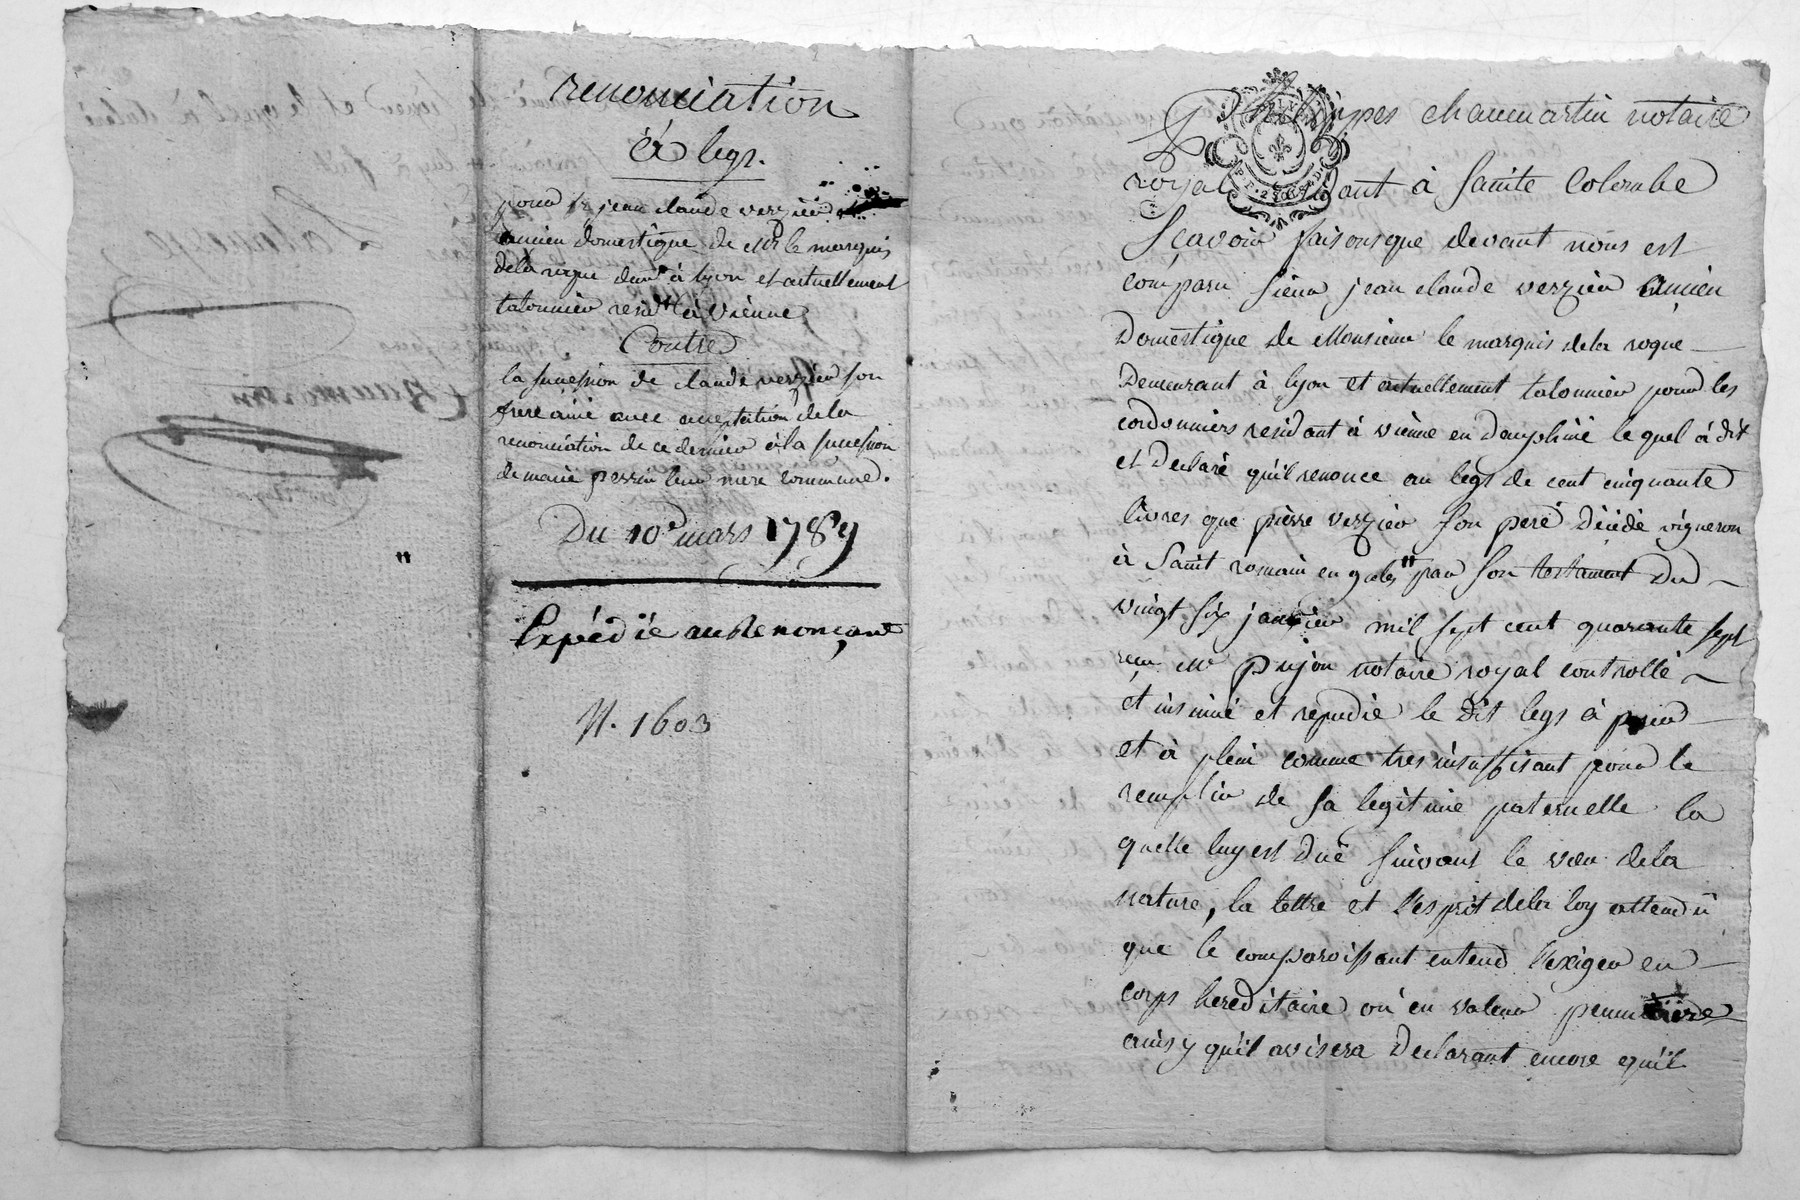 renonciation
à legs.
pour sr jean claude verzieu
ancien domestique de Mr le marquis
dela roque demt à lyon et actuellement
talonnier residt à vienne
Contre
la succession de claude verzieu son
frere ainé avec acceptation dela
renonciation de ce dernier à la succession
de marie perrin leur mere commune.
Du 10e mars 1789
Expédié au Renonçant
N. 1603
Philippes chaumartin notaire
royal residant à Sainte Colombe
Sçavoir faisons que devant nous est
comparu sieur jean claude verzieu ancien
Domestique de Monsieur le marquis dela roque
Demeurant à lyon et actuellement talonnier pour les
cordonniers residant à vienne en dauphiné le quel à dit
et Declaré qu'il renonce au legs de cent cinquante
livres que pierre verzieu son pere décédé vigneron
à Saint romain en par son testament du
vingt six janvier mil sept cent quarante sept
reçu me pujon notaire royal controllé
et insinué et repudie le dit legs à pur
et à plein comme tres insuffisant pour le
remplir de sa legitime paternelle la
quelle luy est dué suivant le vœu dela
nature, la lettre et l'esprit dela loy attendu
que le comparoissant entend l'exiger en
corps hereditaire ou en valeur pecuniaire
ainsy qu'il avisera Declarant encore qu'il
chaumartin